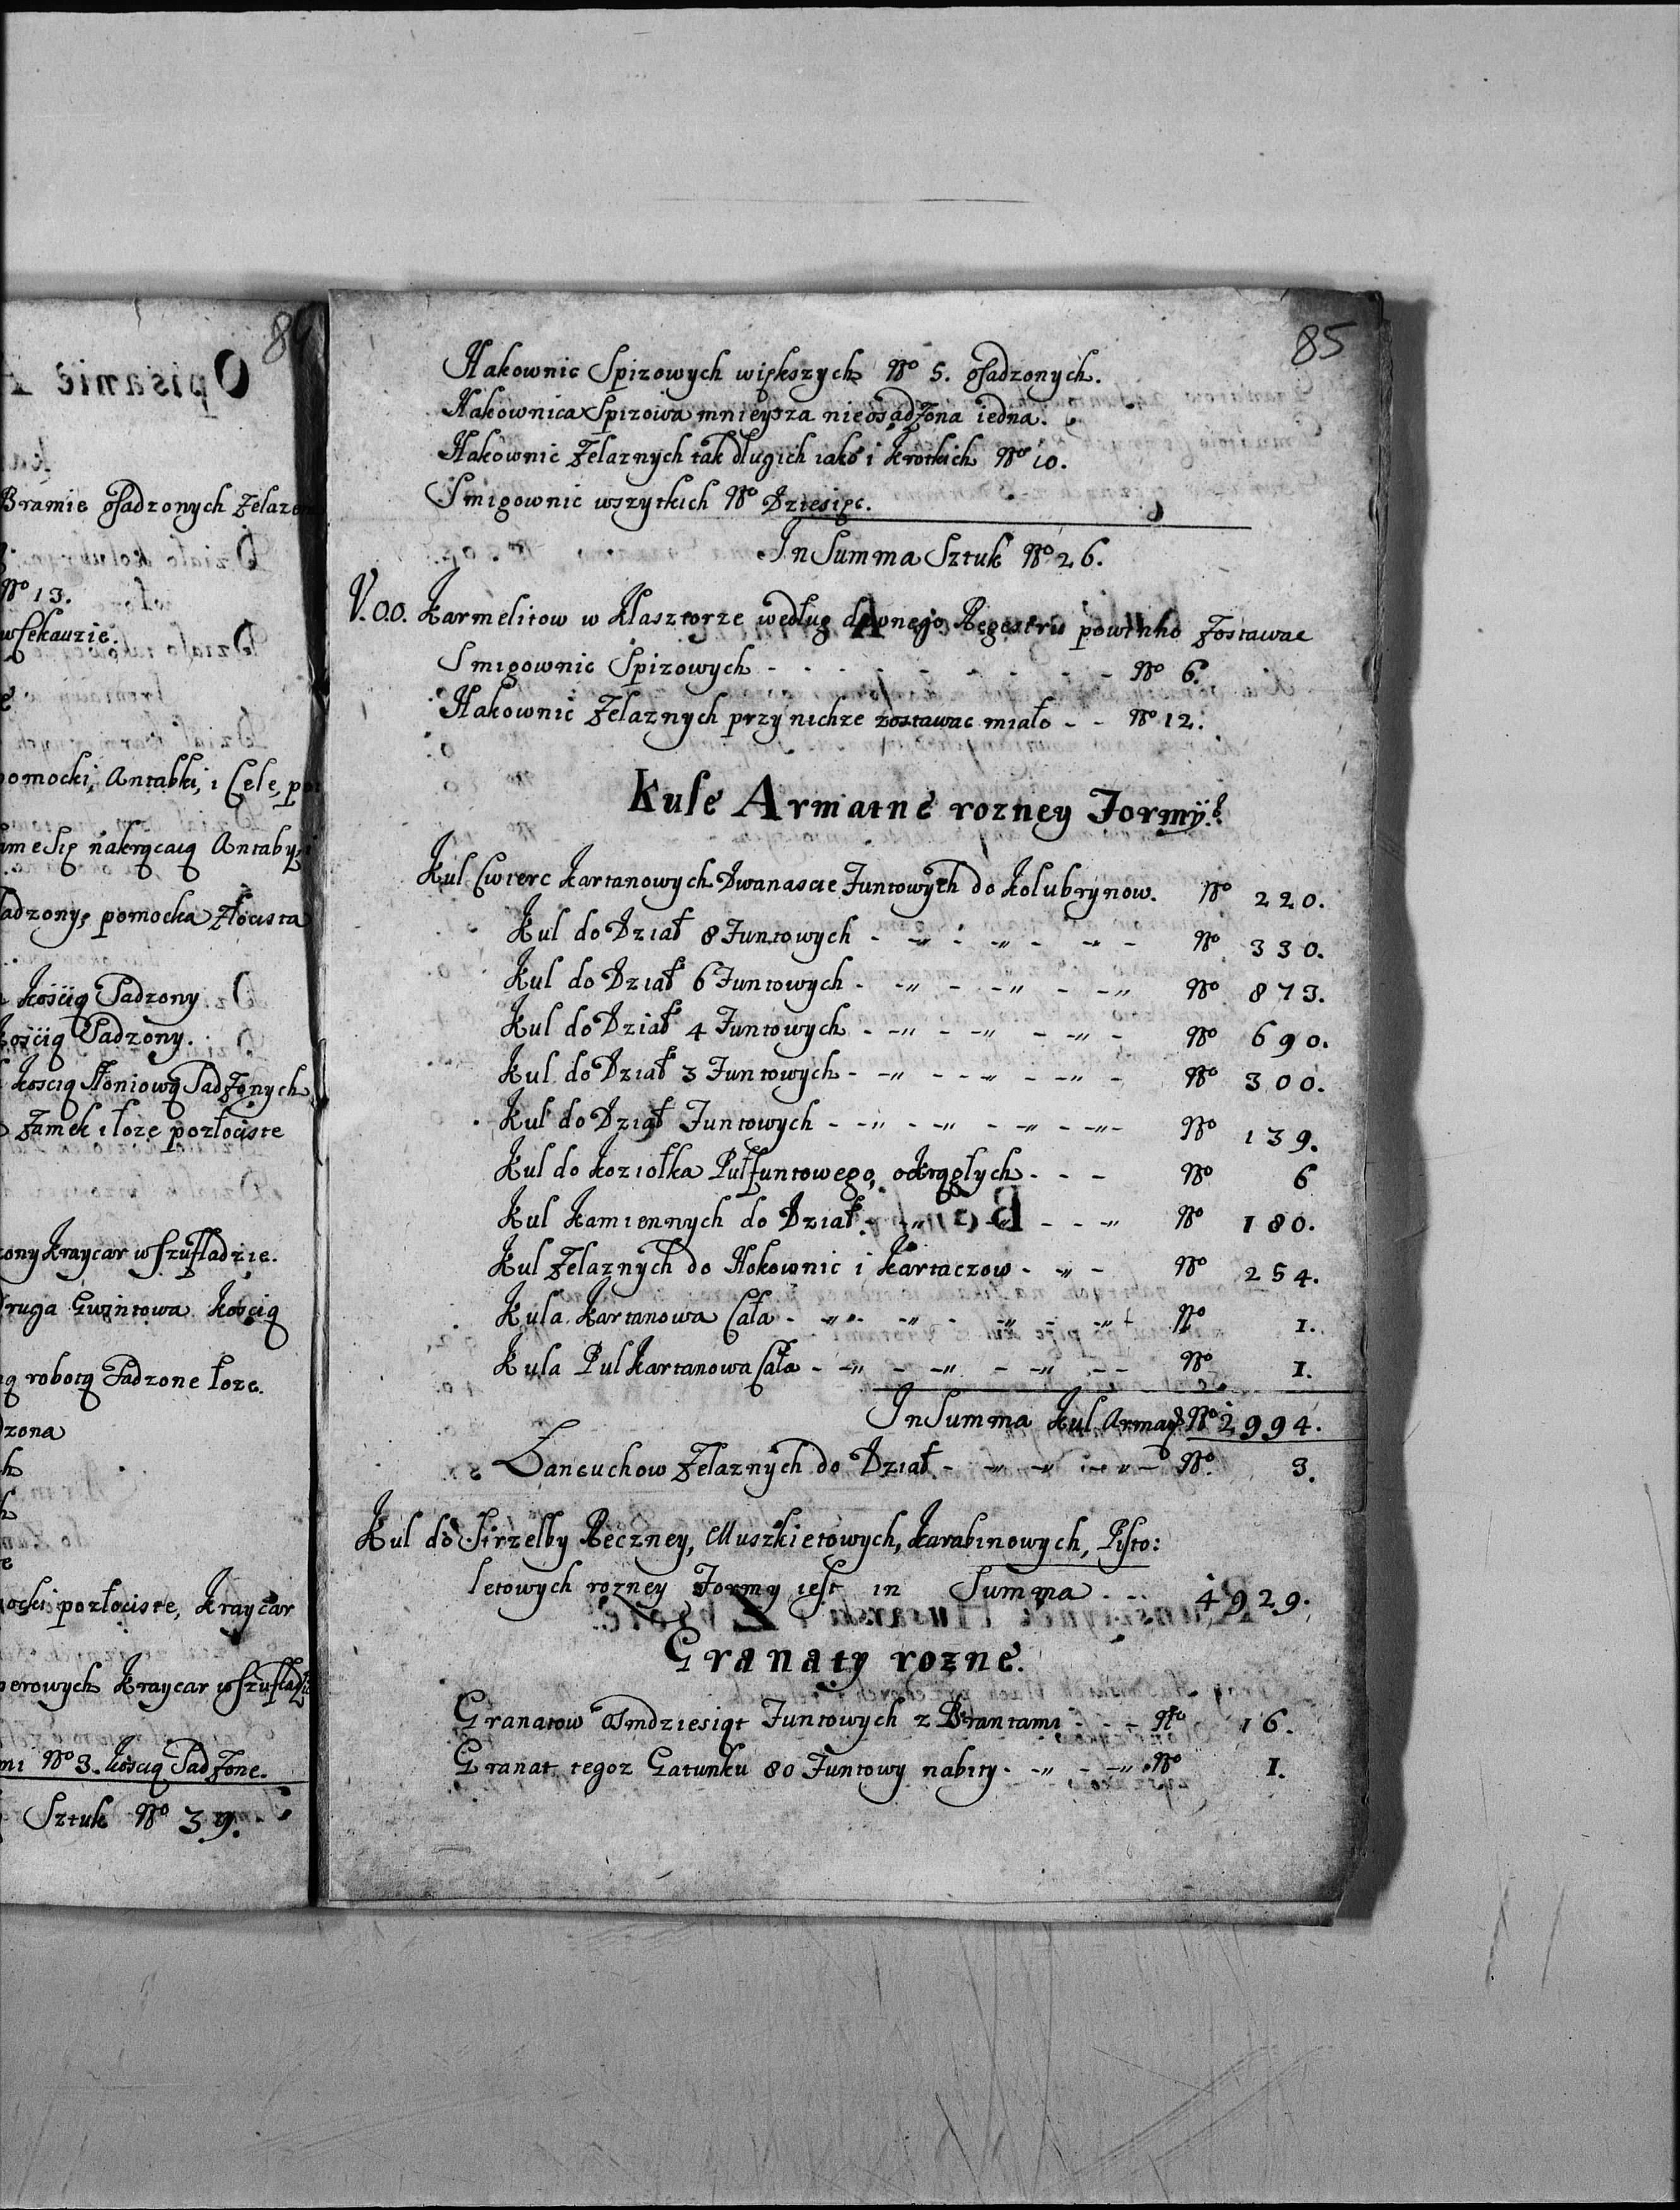 84
Opisanie
Bramie osadzonych Zelaz
No 13.
w sekauzie.
pomocki, Antabki, i Cele, po
nakrącaią Antaby
sadzony, pomocka złocista
Kościią Sadzony
Kościią Sadzony.
Kością Słoniową Sadzonych
Zamek i łoże pozłociste
Kraycar w szufladzie.
druga Gwintowa Kością
robotą Sadzone łoże.
dzona
pozłociste, Kraycar
perowych Kraycar w szufladzi
No 3. Kością Sadzone.
Sztuk No 39.
85
Hakownic Spizowych większych No 5. osadzonych.
Hakownica Spizowa mnieysza nieosadzona iedna.
Hakownic Zelaznych tak długich iako i krotkich No 10.
Smigownic wszytkich No Dziesięc.
In Summa Sztuk No 26.
V.O.O. Karmelitow w Klasztorze według dawnego Regestru powinno zostawac
Smigownic Spizowych - - - - - - - - No 6.
Hakownic Zelaznych przy nichze zostawac miało - - No 12.
Kule Armatne rozney Formÿ.
Kul Cwierc Kartanowych Dwanascie Funtowych do Kolubrynow. No 220.
Kul do Dział 8 Funtowych - -„ - -„ - -„ - No 330.
Kul do Dział 6 Funtowych - -„ - -„ - -„ No 873.
Kul do Dział 4 Funtowych - -„ - -„ - -„ - No 690.
Kul do Dział 3 Funtowych - -„ - -„ - -„ - No 300.
Kul do Dział Funtowych - -„ - -„ - -„ - -„ - No 139.
Kul do Koziołka Pułfuntowego, okrągłych - - - No 6
Kul Kamiennych do Dział - -„ - - -„ No 180.
Kul Zelaznych do Hokownic i Kartaczow - -„ - No 254.
Kula Kartanowa Cała - -„ - -„ - -„ - -„ - No 1.
Kula Pul Kartanowa Cała - -„ - -„ - -„ - - No 1.
In Summa Kul Armat No 2994.
Łancuchow Zelaznych do Dział - -„ -„ - -„ - No 3.
Kul do Strzelby Ręczney, Muszkietowych, Karabinowych, Pisto:
letowych rozney Formy iest in Summa - - - 4929.
Granaty rozne.
Granatow Osmdziesiąt Funtowych z Brantami - - - No 16.
Granat tegoz Gatunku 80 Funtowy nabity - -„ - -„ No 1.